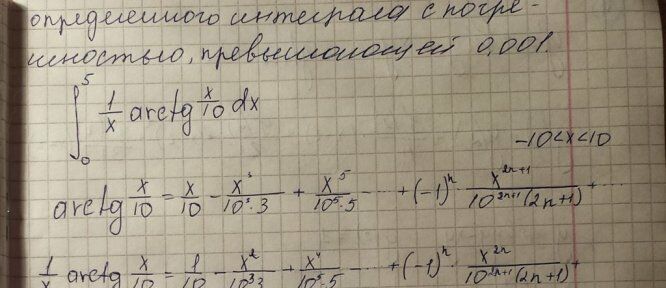 определенного интеграла с погре-
шностью, превышающей 0,001.
∫₀⁵ 1/x arctg x/10 dx
-10<x<10
arctg x/10 = x/10 - x³/10³·3 + x⁵/10⁵·5 ... + (-1)ⁿ x²ⁿ⁺¹/10²ⁿ⁺¹(2n+1) + ...
1/x arctg x/10 = 1/10 - x²/10³3 + x⁴/10⁵·5 ... + (-1)ⁿ · x²ⁿ/10²ⁿ⁺¹(2n+1) +